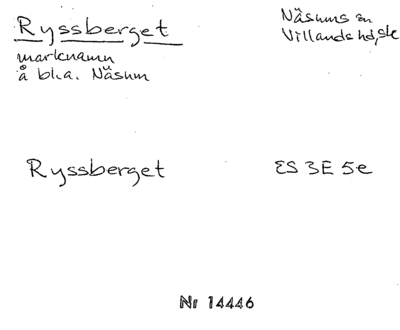 Ryssberget
Näsums sn
Villands hd, sk
marknamn
å bl.a. Näsum
Ryssberget
ES 3E 5e
Nr 14446